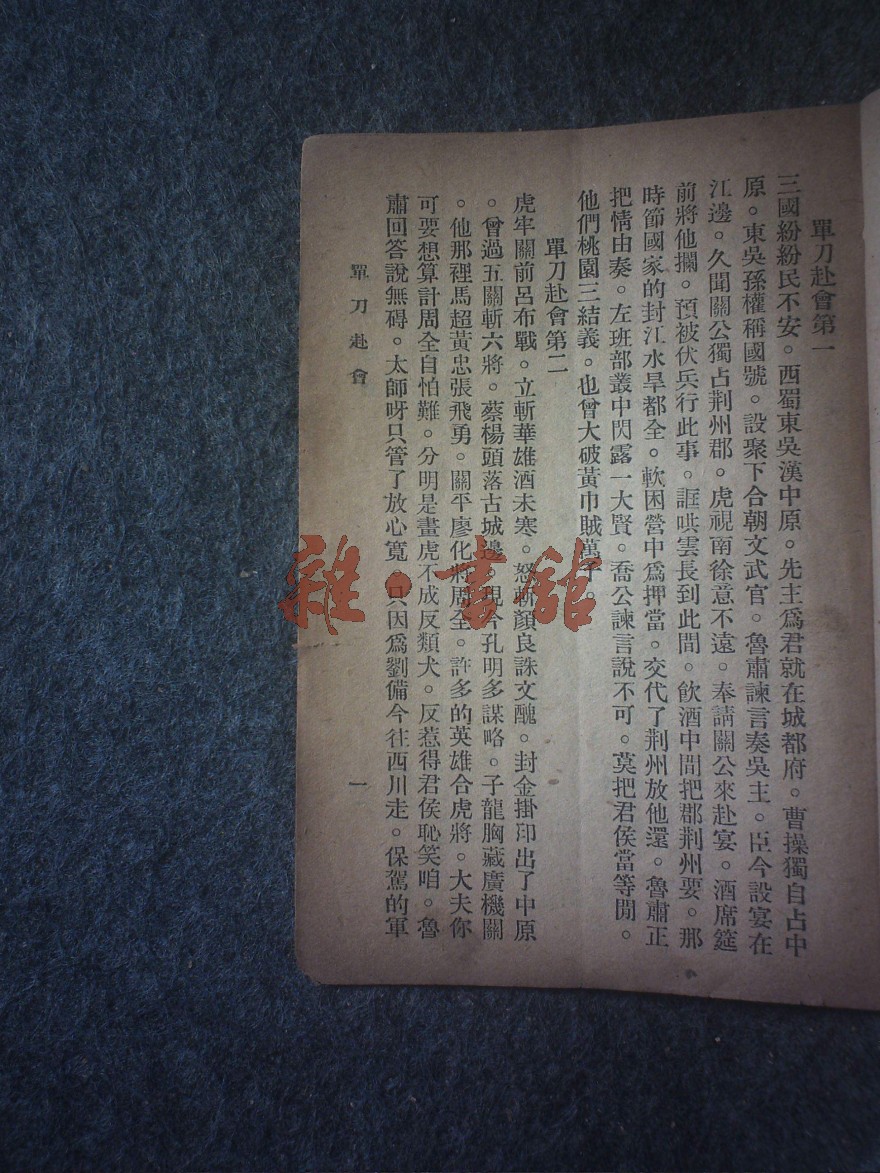 單刀赴會第一
三國紛紛民不安。西蜀東吳漢中原。先主爲君就在城都府。曹操獨自占中
原。東吳孫權稱國號。設聚下合朝文武官。魯肅諫言奏吳主。臣今設宴在
江邊。久聞關公獨占荆州郡。虎視南徐意不遠。奉請關公來赴宴。酒席筵
前將他攔。預被伏兵行此事。誆哄雲長到此間。飲酒中間把郡荆州要。那
時節國家的封江水旱都全。軟困營中爲押當。交代了荆州放他還。魯肅正
把情由奏。左班部叢中閃露一大賢。喬公諫言說不可。莫把君侯當等閒。
他們桃園三結義。也曾大破黃巾賊萬千。
單刀赴會第二
虎牢關前呂布戰。立斬華雄酒未寒。怒斬顏良誅文醜。封金掛印出了中原
。曾過五關斬六將。蔡楊頭落古城邊。現今孔明多謀略。子龍胸藏廣機關
。他那裡馬超黃忠張飛勇。關平廖化將周全。許多的英雄合虎將。大夫你
可要想算計周全自怕難。分明是畫虎不成反類犬。反惹得君侯恥笑咱。魯
肅回答說無碍。太師呀只管了放心寬。只因爲劉備今往西川走。保駕的軍
單刀赴會
一
雜·書館